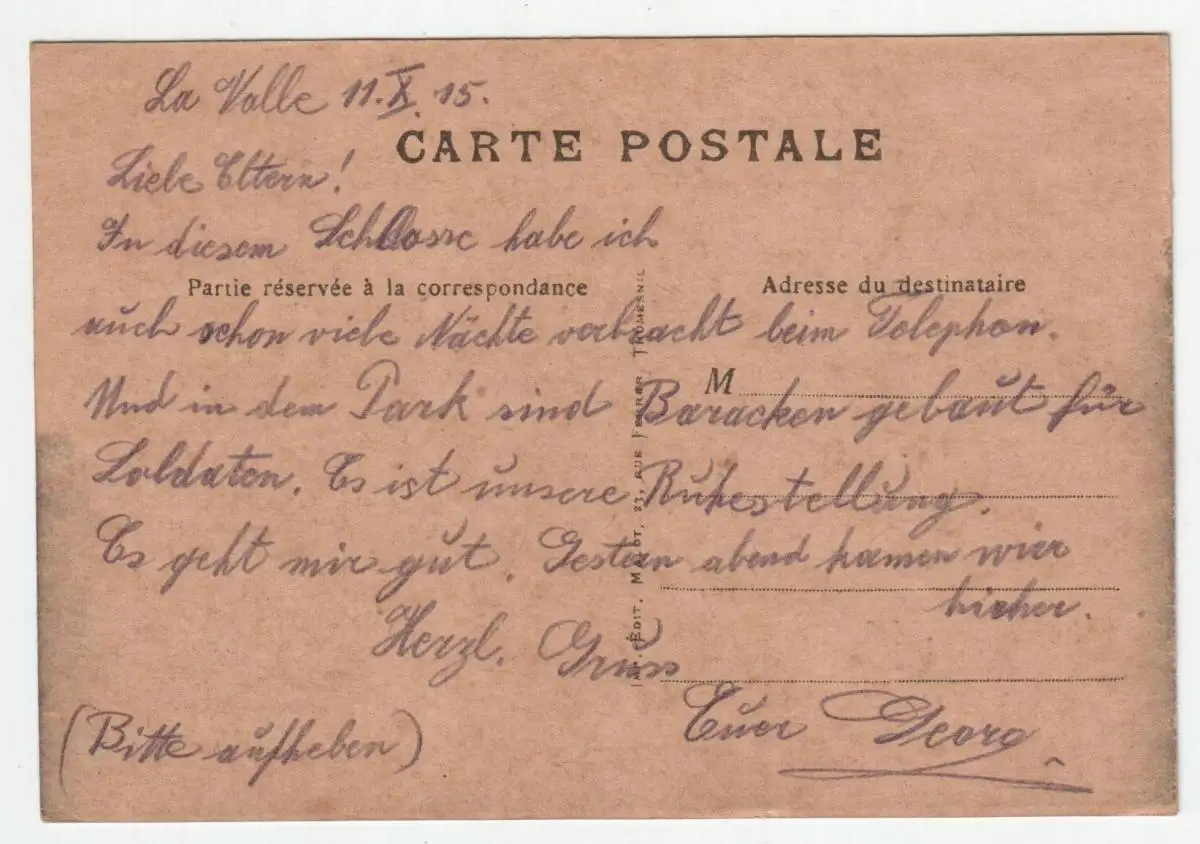 La Valle 11.X.15.
CARTE POSTALE
Liebe Eltern!
In diesem Schlosse habe ich
Partie réservée à la correspondance
Adresse du destinataire
auch schon viele Nächte verbracht beim Telephon.
M
Und in dem Park sind Baracken gebaut für
Soldaten. Es ist unsere Ruhestellung.
Es geht mir gut. Gestern abend kamen wier
hieher.
Herzl. Gruss
Euer Georg
(Bitte aufheben)
IMP. ÉDIT. 23, RUE